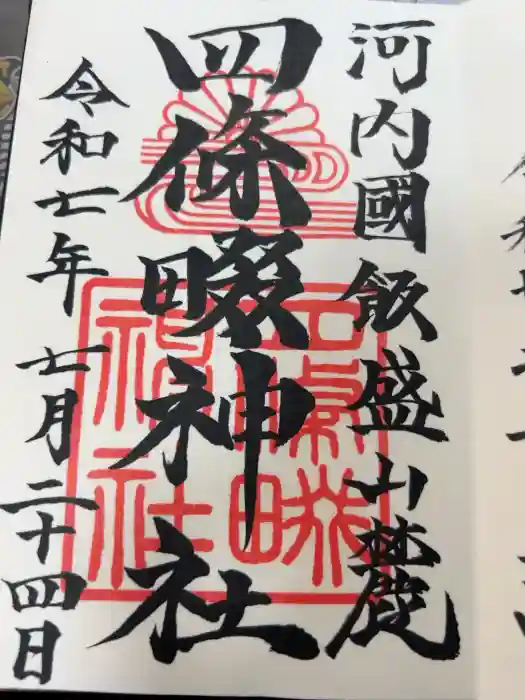 河内國飯盛山麓
四條畷神社
令和七年 七月二十四日
四條畷神社